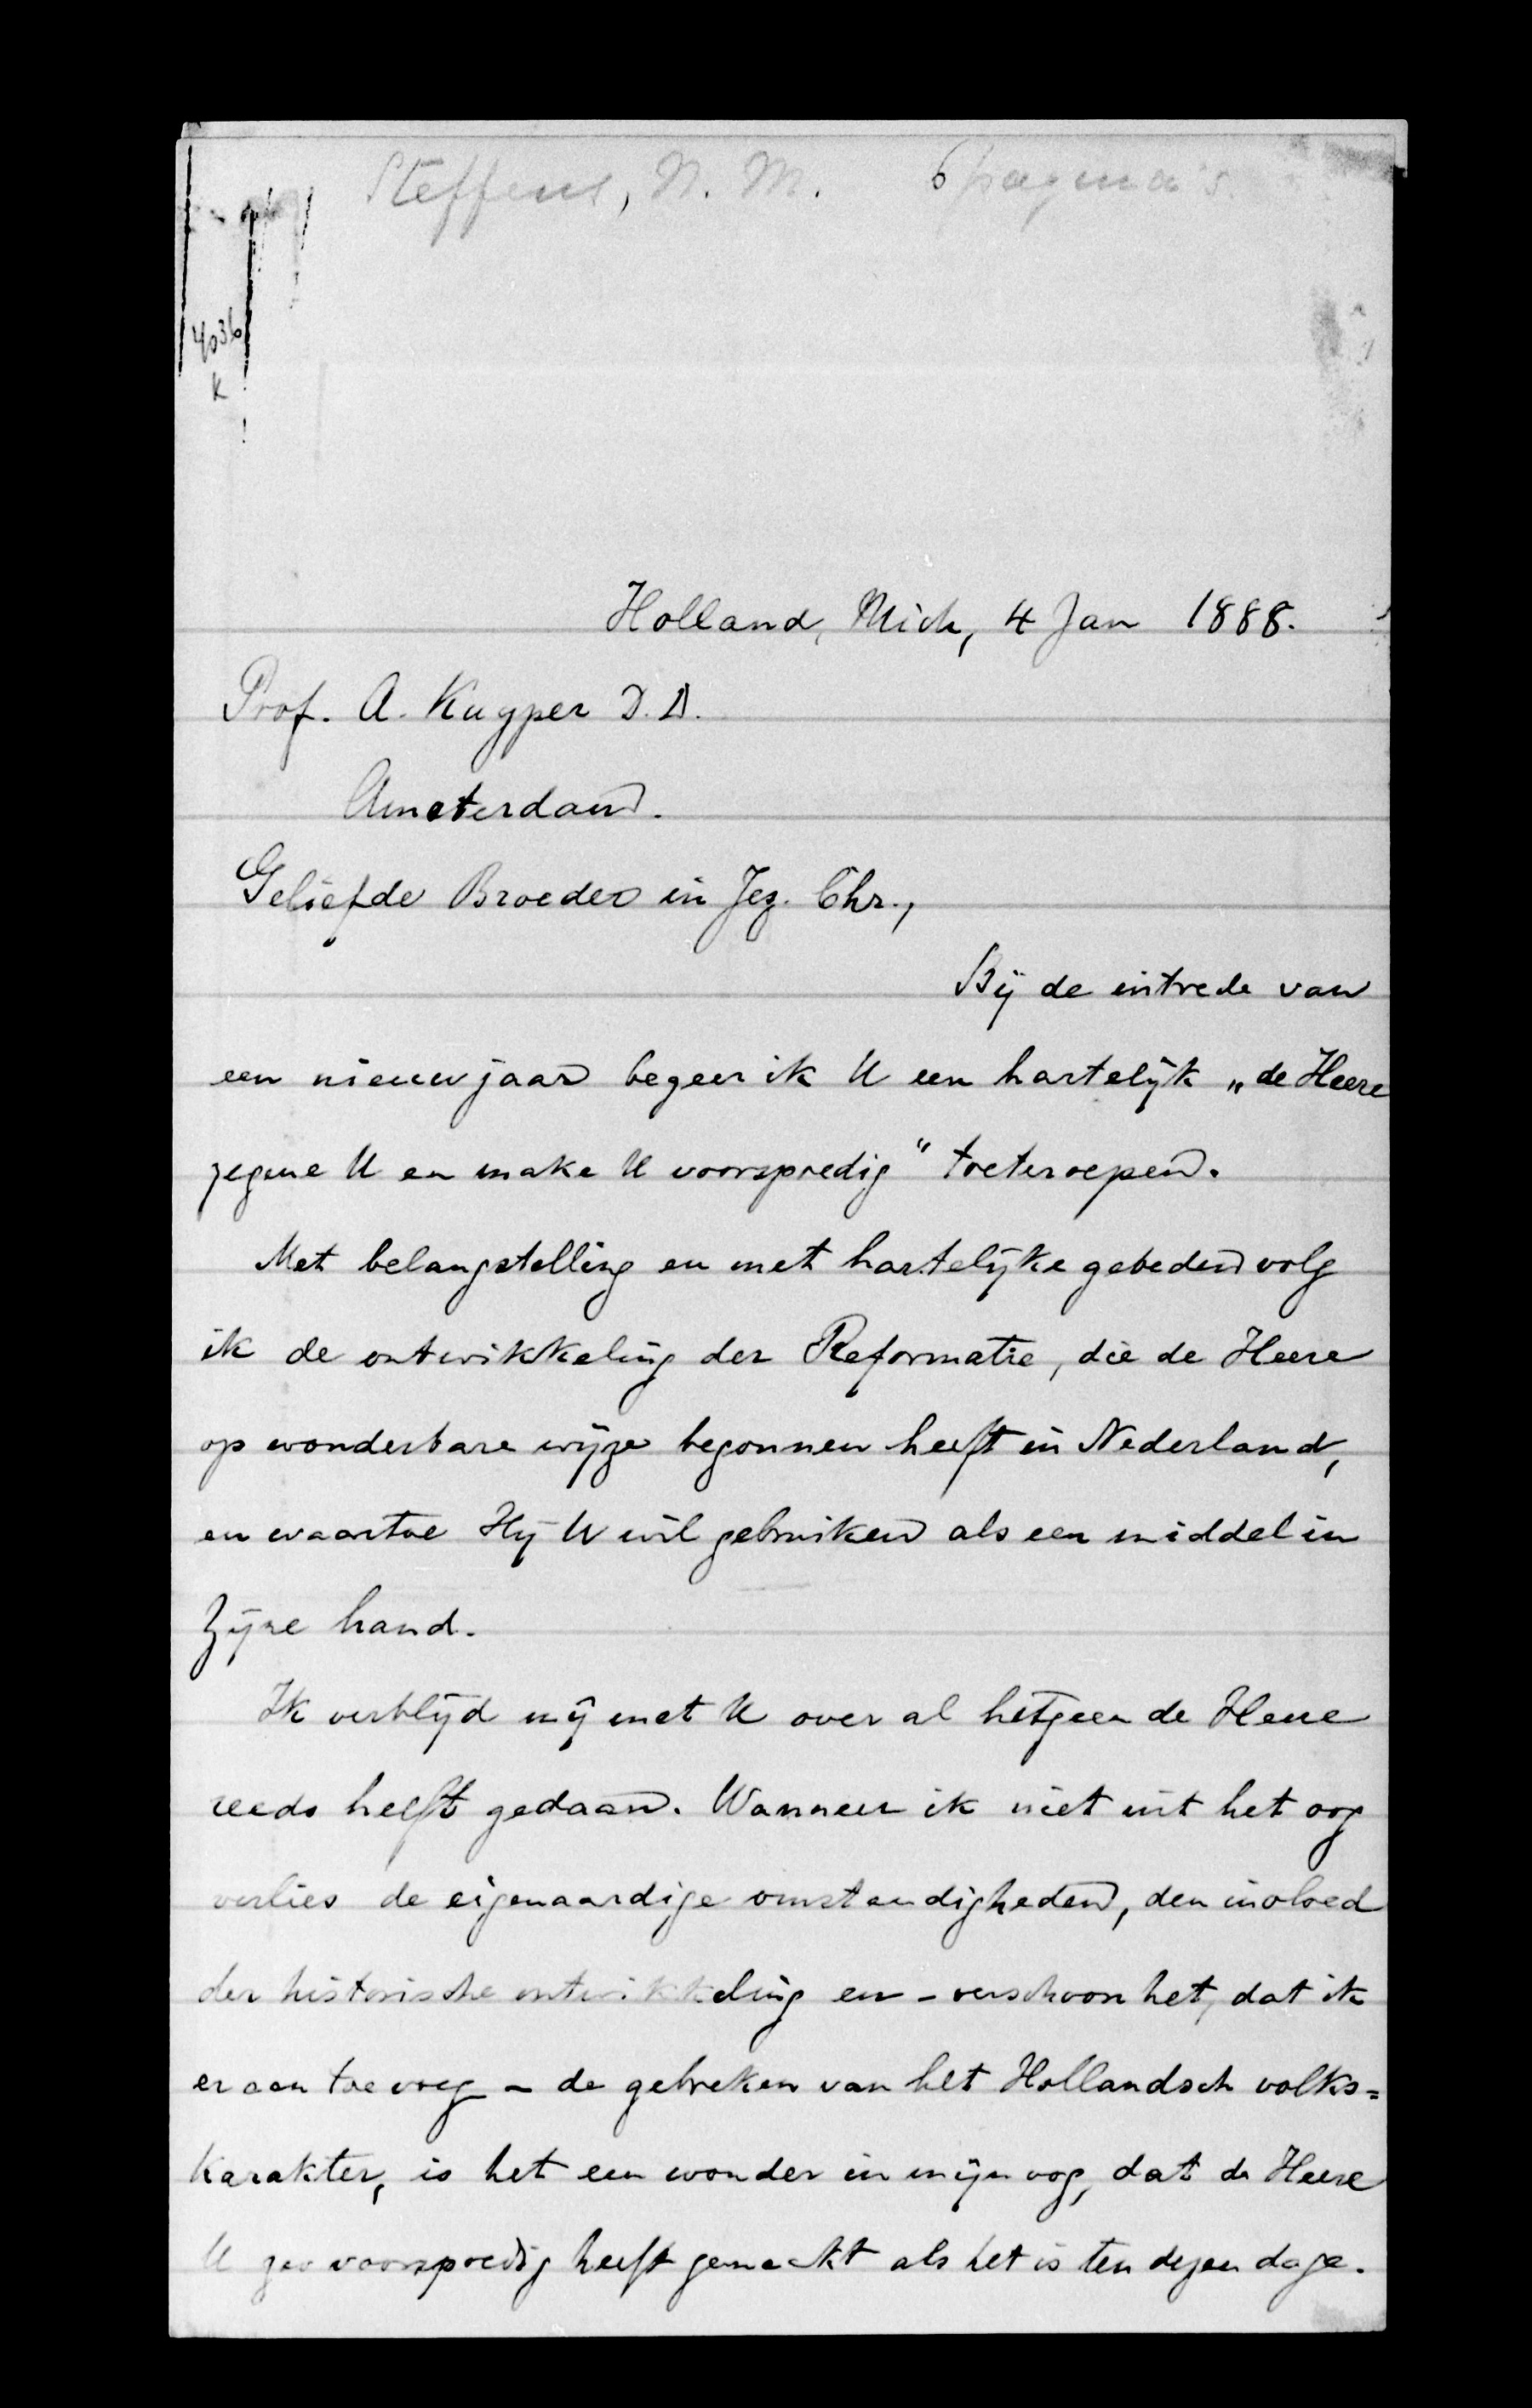 Steffens, N. M. 6 pagina's
4036
k
Holland, Mich, 4 Jan 1888.
Prof. A. Kuyper D.D.
Amsterdam.
Geliefde Broeder in Jez. Chr.,
Bij de intrede van
een nieuw jaar begeer ik U een hartelijk „de Heere
zegene U en make U voorspoedig" toeteroepen.
Met belangstelling en met hartelijke gebeden volg
ik de ontwikkeling der Reformatie, die de Heere
op wonderbare wijze begonnen heeft in Nederland,
en waartoe Hij U wil gebruiken als een middel in
Zijne hand.
Ik verblijd mij met U over al hetgeen de Heere
reeds heeft gedaan. Wanneer ik niet uit het oog
verlies de eigenaardige omstandigheden, den invloed
der historische ontwikkeling en - verschoon het, dat ik
er aan toe voeg - de gebreken van het Hollandsch volks=
karakter, is het een wonder in mijn oog, dat de Heere
U zoo voorspoedig heeft gemaakt als het is ten dezen dage.